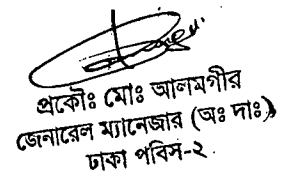 প্রকৌঃ মোঃ আলমগীর
জেনারেল ম্যানেজার (অঃ দাঃ)
ঢাকা পবিস-২